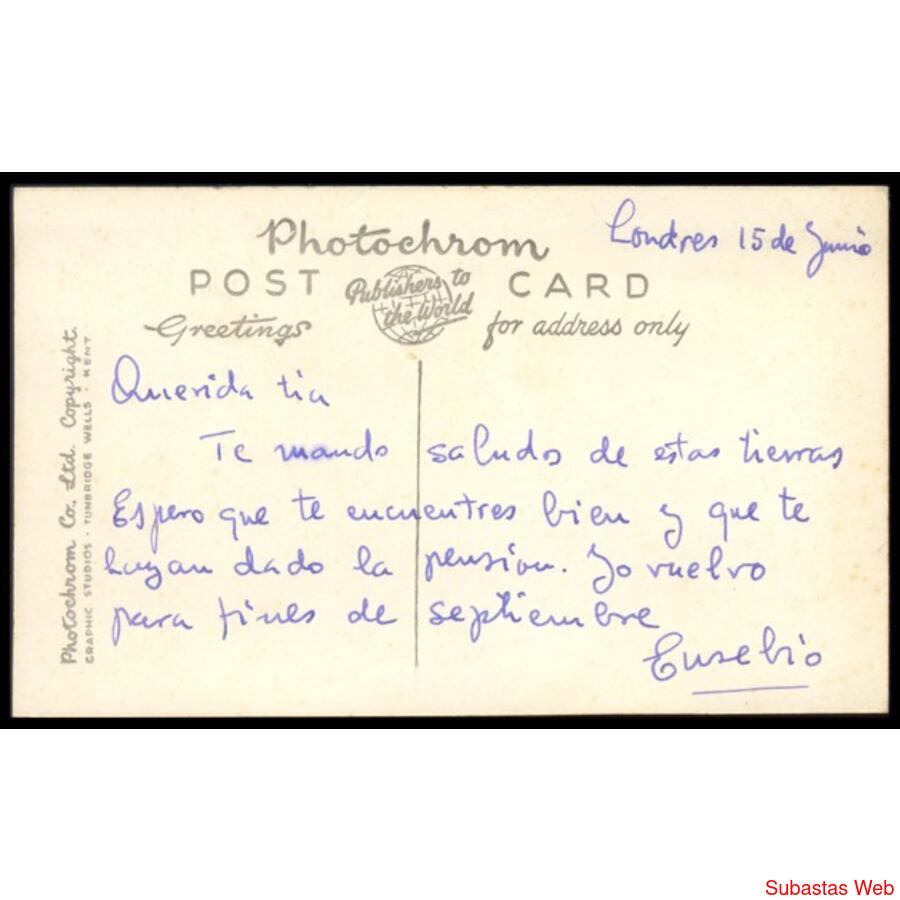 Londres 15 de Junio
Photochrom
POST CARD
Publishers to
the World
Greetings
for address only
Photochrom Co., Ltd. Copyright.
GRAPHIC STUDIOS · TUNBRIDGE WELLS · KENT
Querida tia
Te mando saludos de estas tierras
Espero que te encuentres bien y que te
hayan dado la pension. Yo vuelvo
para fines de septiembre
Eusebio
Subastas Web